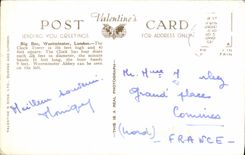 Valentine's
POST CARD
SENDING YOU GREETINGS
FOR ADDRESS ONLY
Big Ben, Westminster, London.—The
Clock Tower is 316 feet high and 40
feet square. The Clock has four dials
each 23 feet in diameter, the minute
hands 14 feet long, the hour hands
9 feet. Westminster Abbey can be seen
on the left.
Meilleur souvenir
Mr. Mme
Grand' place
Comines
(Nord)
FRANCE
THIS IS A REAL PHOTOGRAPH